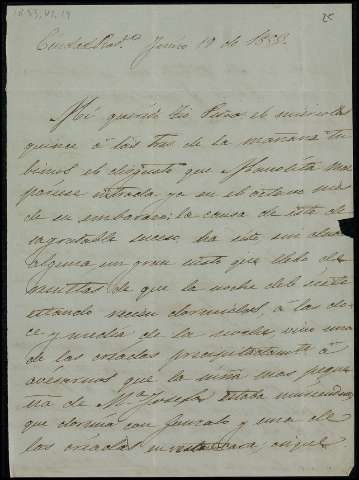 25
Ciudad Real Junio 19 de 1853.
Mi querido tio Peña: el miercoles
quince á las tres de la mañana tu
bimos el disgusto que Manolita mal
pariese entrada ya en el octavo mes
de su embarazo; la causa de este de
sagradable suceso, ha sido, sin duda
alguna un gran susto que llebó de
resultas de que la noche del siete
estando recien dormidos, á las do
ce y media de la noche, vino una
de las criadas precipitadamte á
avisarnos que la niña mas peque
ña de Ma Josefa estaba muriendose
que dormia con Gonzalo y una de
las criadas